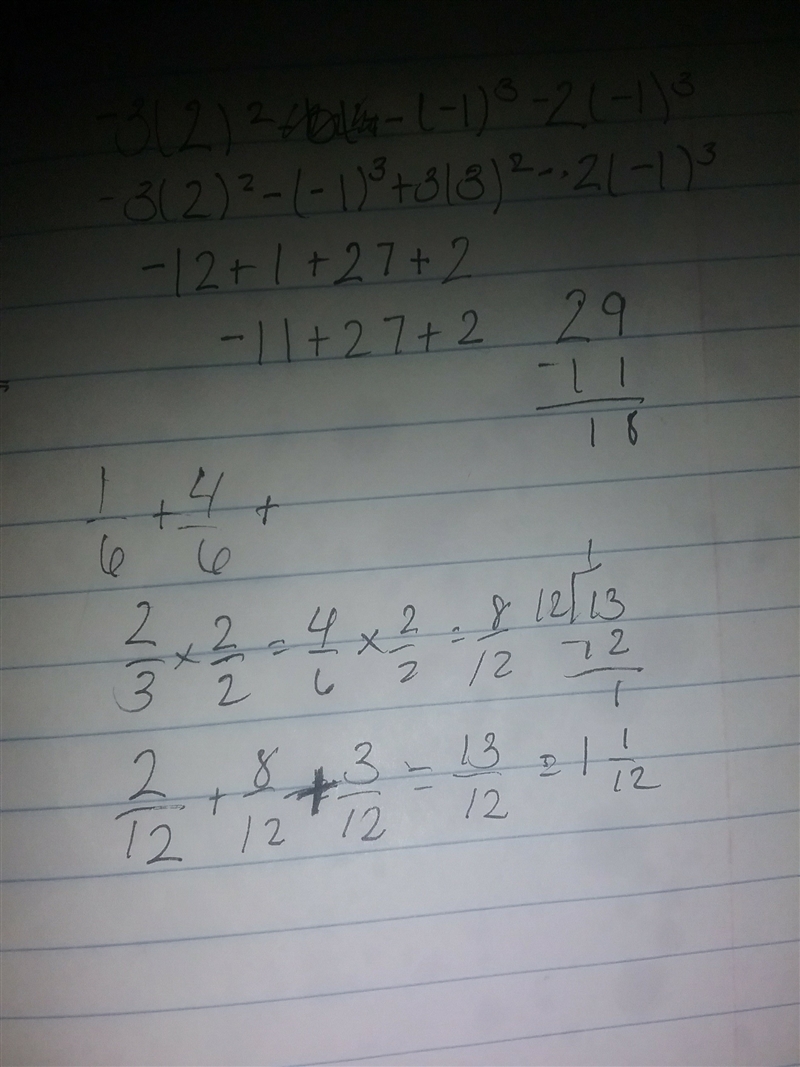 -3(2)² -(-1)³ -2(-1)³
-3(2)² -(-1)³ +3(3)² -·2(-1)³
-12+1+27+2
-11+27+2
29
-11
18
1/6 + 4/6 +
2/3 × 2/2 = 4/6 × 2/2 = 8/12
1
12)13
-12
1
2/12 + 8/12 + 3/12 = 13/12 = 1 1/12